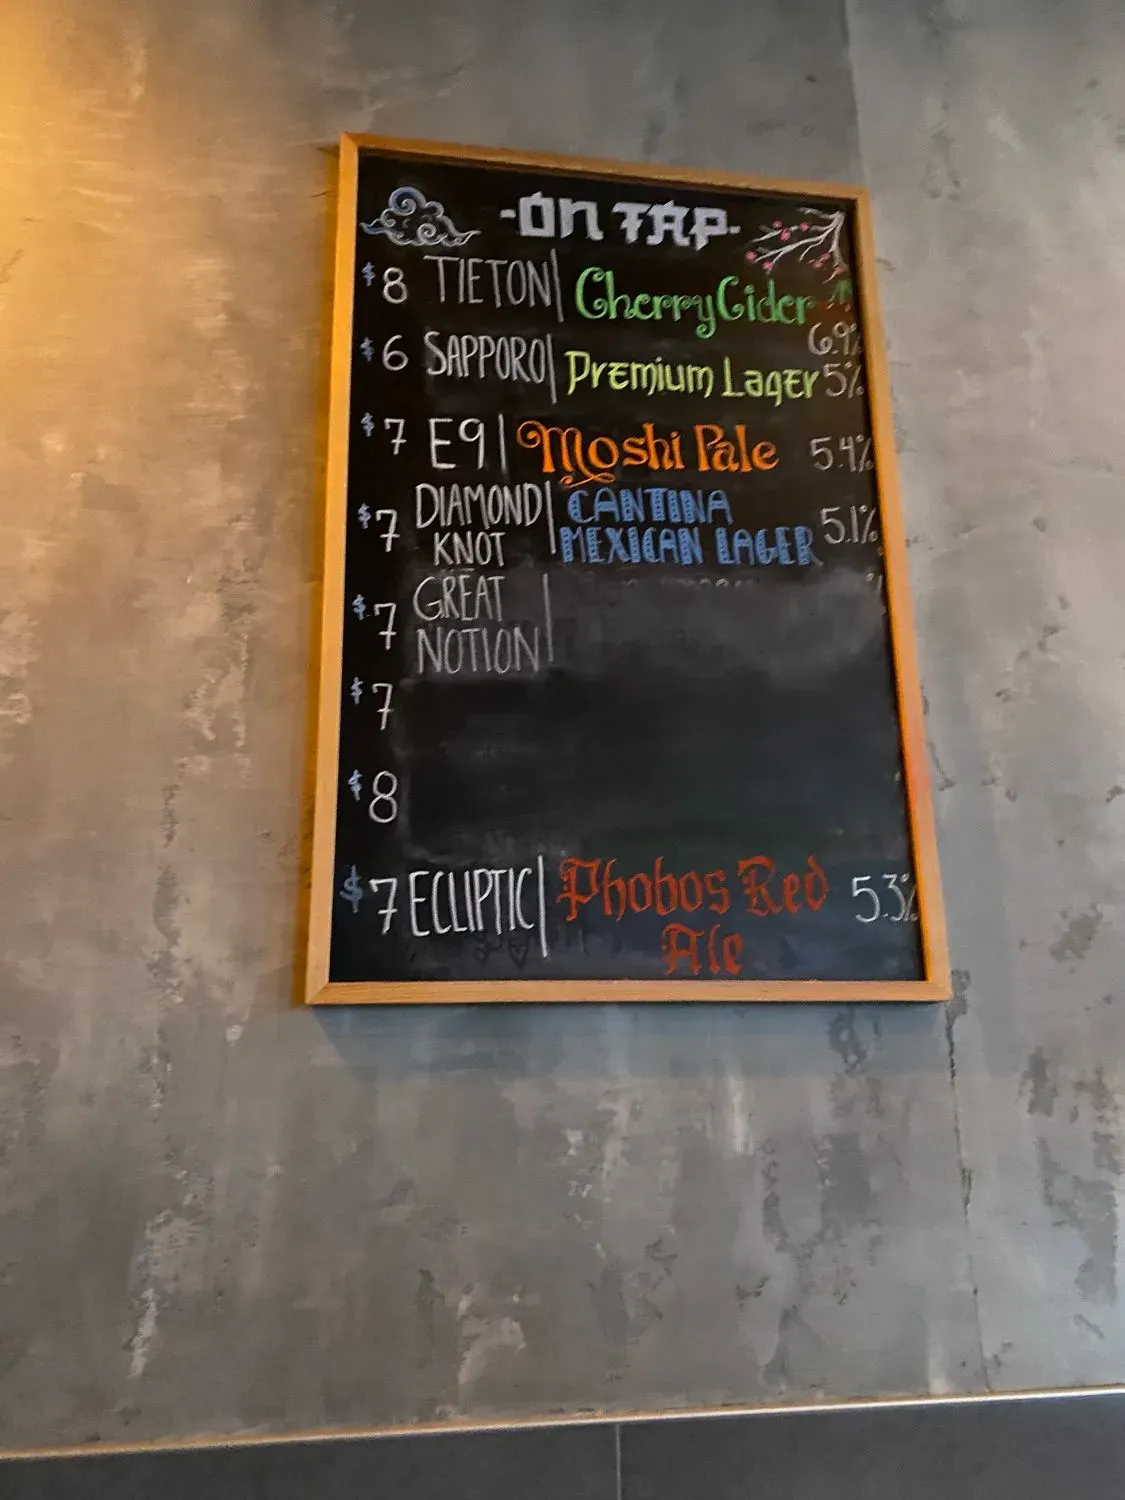 -ON TAP-
$8 TIETON | Cherry Cider 6.9%
$6 SAPPORO | Premium Lager 5%
$7 E9 | Moshi Pale 5.4%
$7 DIAMOND KNOT | CANTINA MEXICAN LAGER 5.1%
$7 GREAT NOTION |
$7
$8
$7 ECLIPTIC | Phobos Red Ale 5.3%